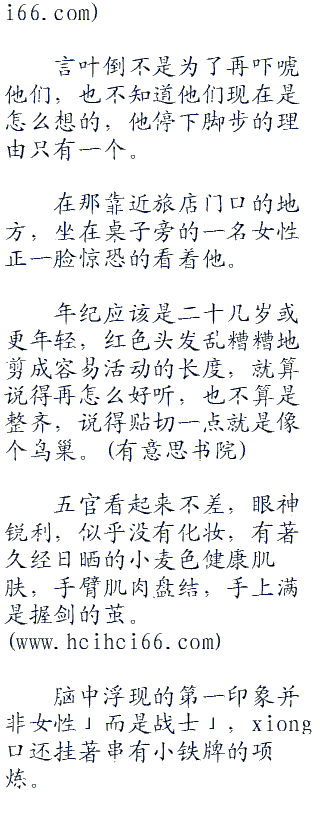 i66.com)
言叶倒不是为了再吓唬
他们，也不知道他们现在是
怎么想的，他停下脚步的理
由只有一个。
在那靠近旅店门口的地
方，坐在桌子旁的一名女性
正一脸惊恐的看着他。
年纪应该是二十几岁或
更年轻，红色头发乱糟糟地
剪成容易活动的长度，就算
说得再怎么好听，也不算是
整齐，说得贴切一点就是像
个鸟巢。(有意思书院)
五官看起来不差，眼神
锐利，似乎没有化妆，有著
久经日晒的小麦色健康肌
肤，手臂肌肉盘结，手上满
是握剑的茧。
(www.hcihci66.com)
脑中浮现的第一印象并
非女性」而是战士」，xiong
口还挂著串有小铁牌的项
炼。